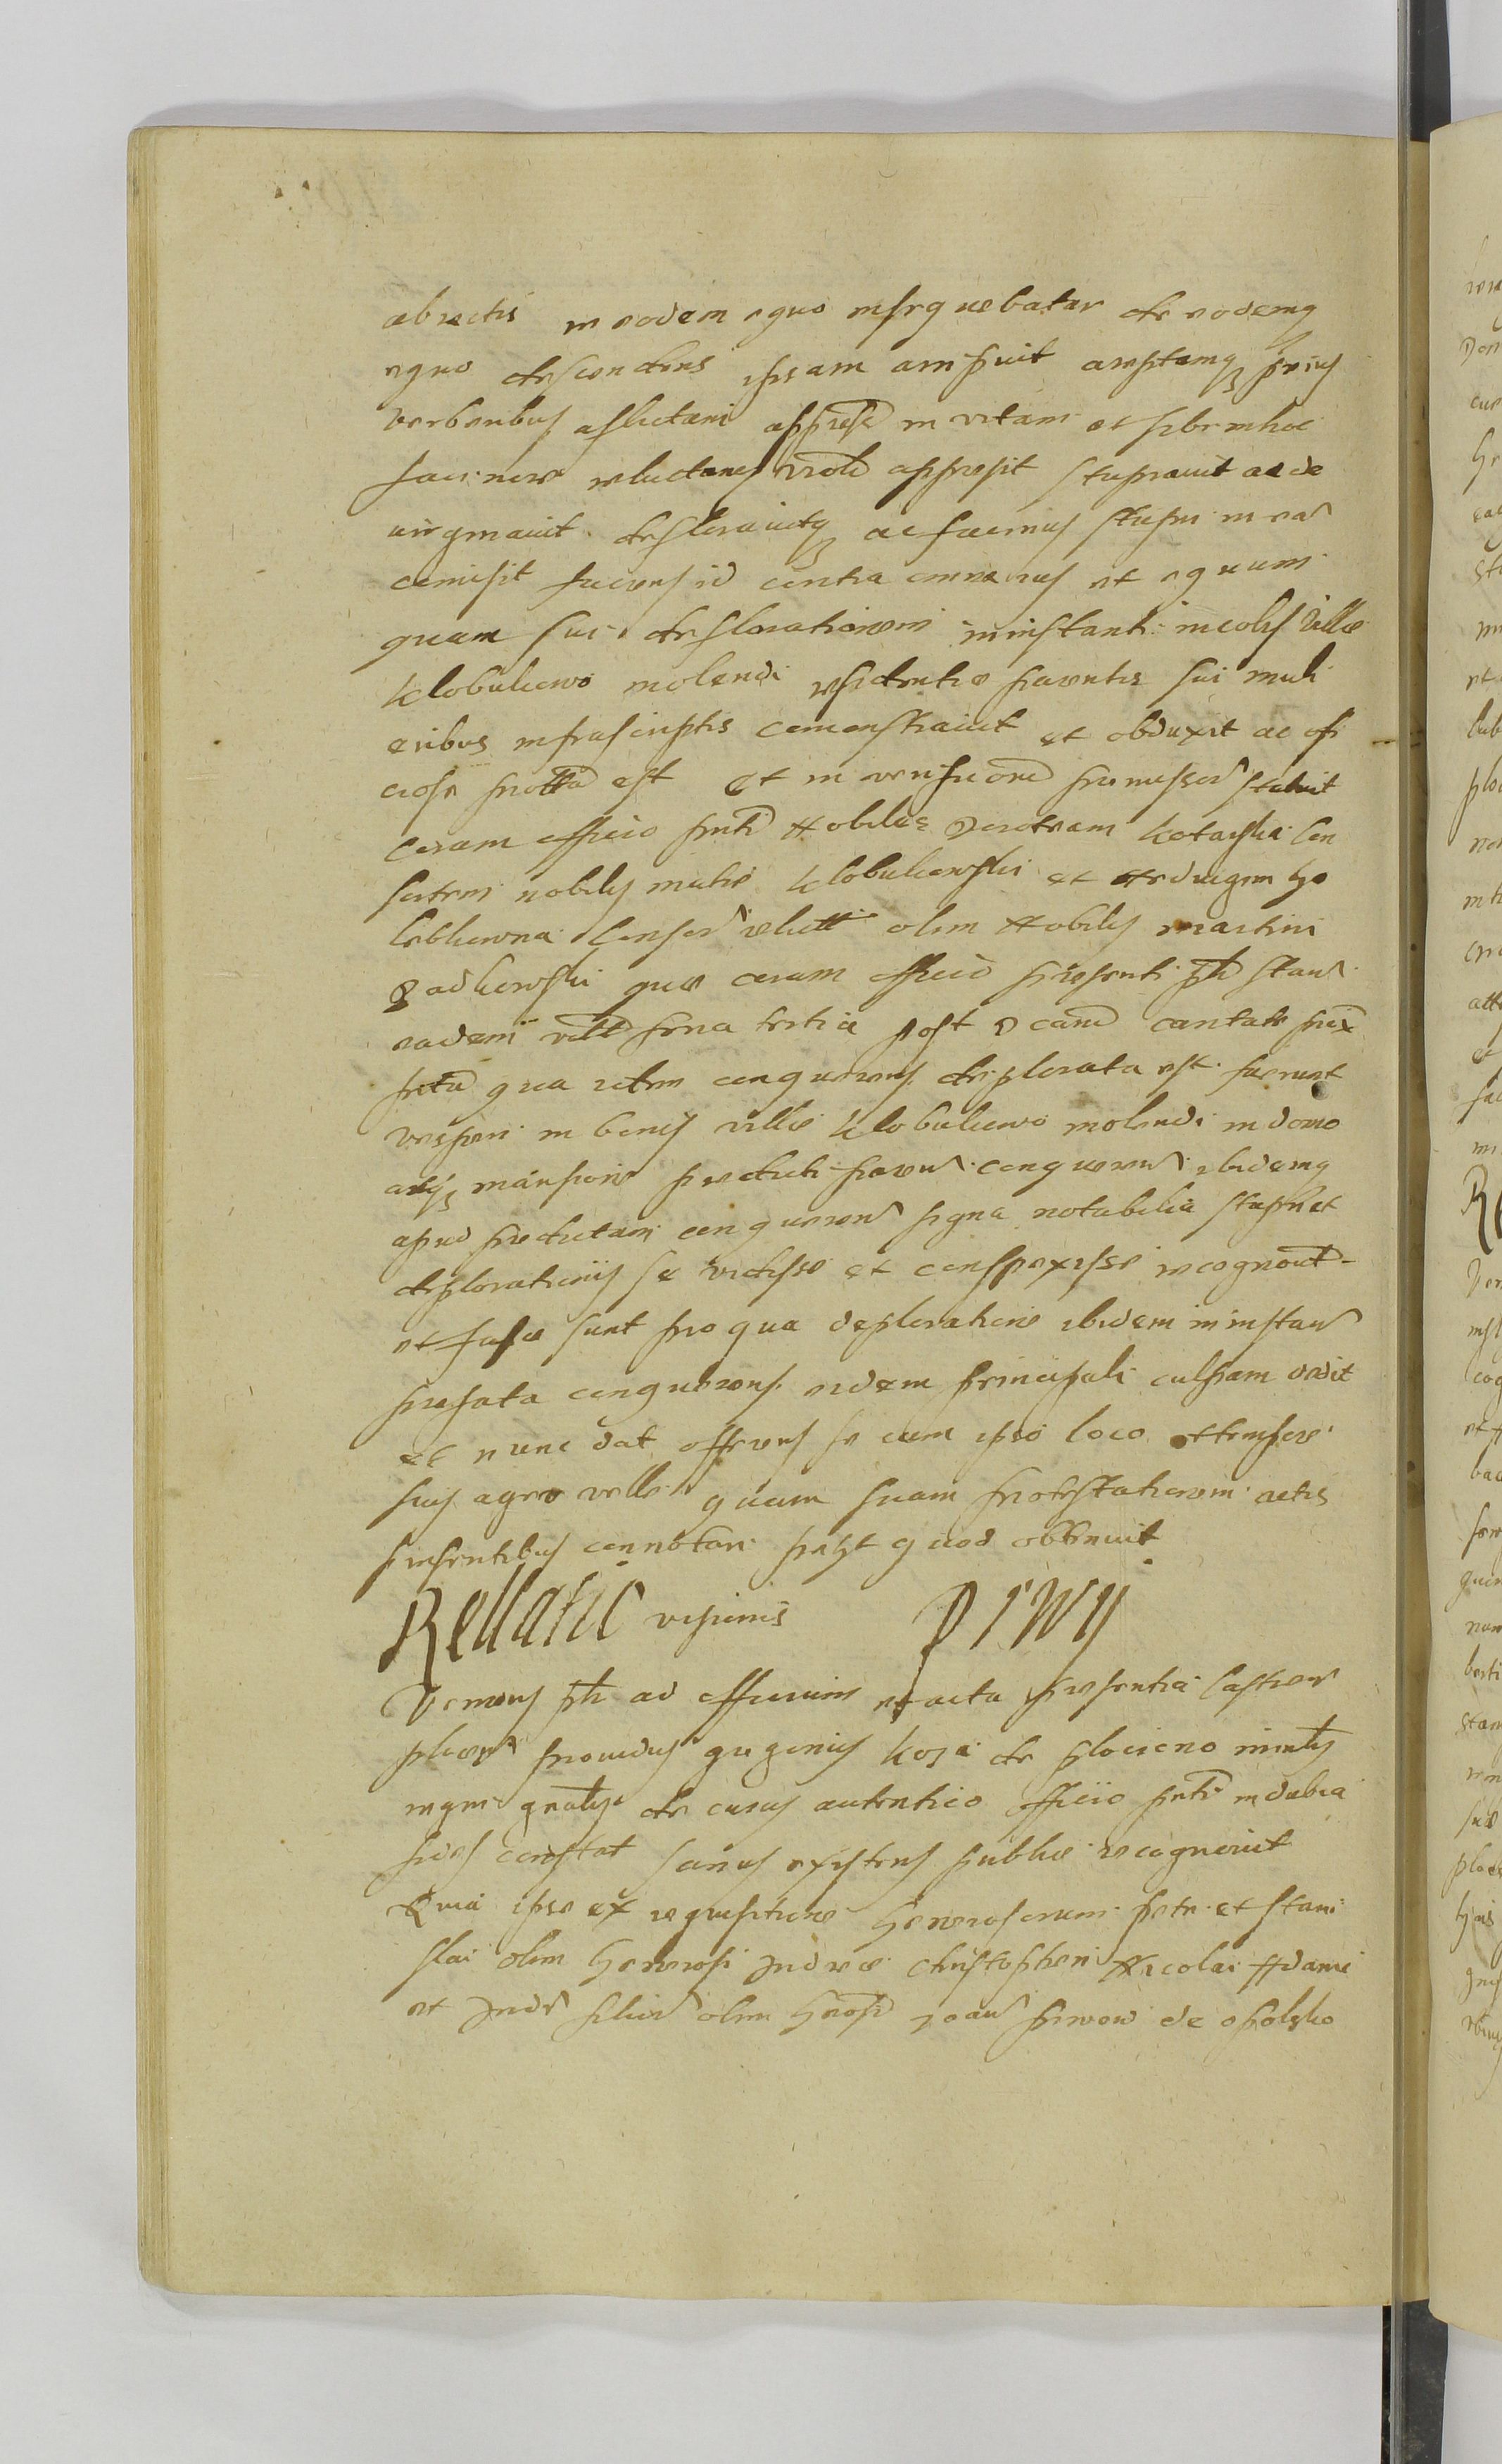 abiectis in eodem equo insequebatur de eodemq
equo descendens ipsam arripuit areptamq prius
verberibus aflictam appressit in vitam et sibi in hoc
facinore reluctanes viole appresit stuprauit ac de
uirginauit deflorauitq ac facinus stupri in ea
comisit faciens id contra omne ius et equum
quam sui deflorationem in instanti incolis Villæ
Klobukowo molendi residentiæ parentis sui muli
eribus infrascriptis comonstrauit et obduxit ac ofi
ciose protta est Et in verificone premissor statuit
coram officio pnti Nobiles Doroteam Kotarska Con
sortem nobilis mathie Klobukowski et Heduigim Go
lebkowna Consor relictt olim Nobilis Martini
Radkowski quæ coram officio præsenti pr stan
eadem vtt feria tertia post Dcam Cantate prox
prta qua ut conquerens deplorata est fuerunt
vesperi in bonis villæ Klobukowo molendi in domo
atq mansione predicti paren conqueren ibidemq
apud predictam conqueren signa notabilia stupri et
deplorationis se vidisse et conspexisse recognount
et fasse sunt pro qua deploratione ibidem in instan
prefata conquerens eidem principali culpam dedit
et nunc dat offerens se cum ipso loco et tempore
suis agere velle quam suam protestationem actis
præsentibus connotari petyt quod obtinuit
Rellatio visionis Piwy
Veniens pr ad officium et acta præsentia Castren
plocen prouidus gregorius Koza de plocicno ministr
regni gnalis de cuius autentico officio pnti indubia
fides constat sanus existens publice recognouit
Quia ipse ex requisitione Generosorum petri et stani
slai olim Generosi Andreæ Christopheri Nicolai Adami
et Andr filior olim Gnosi Joan de opolsko